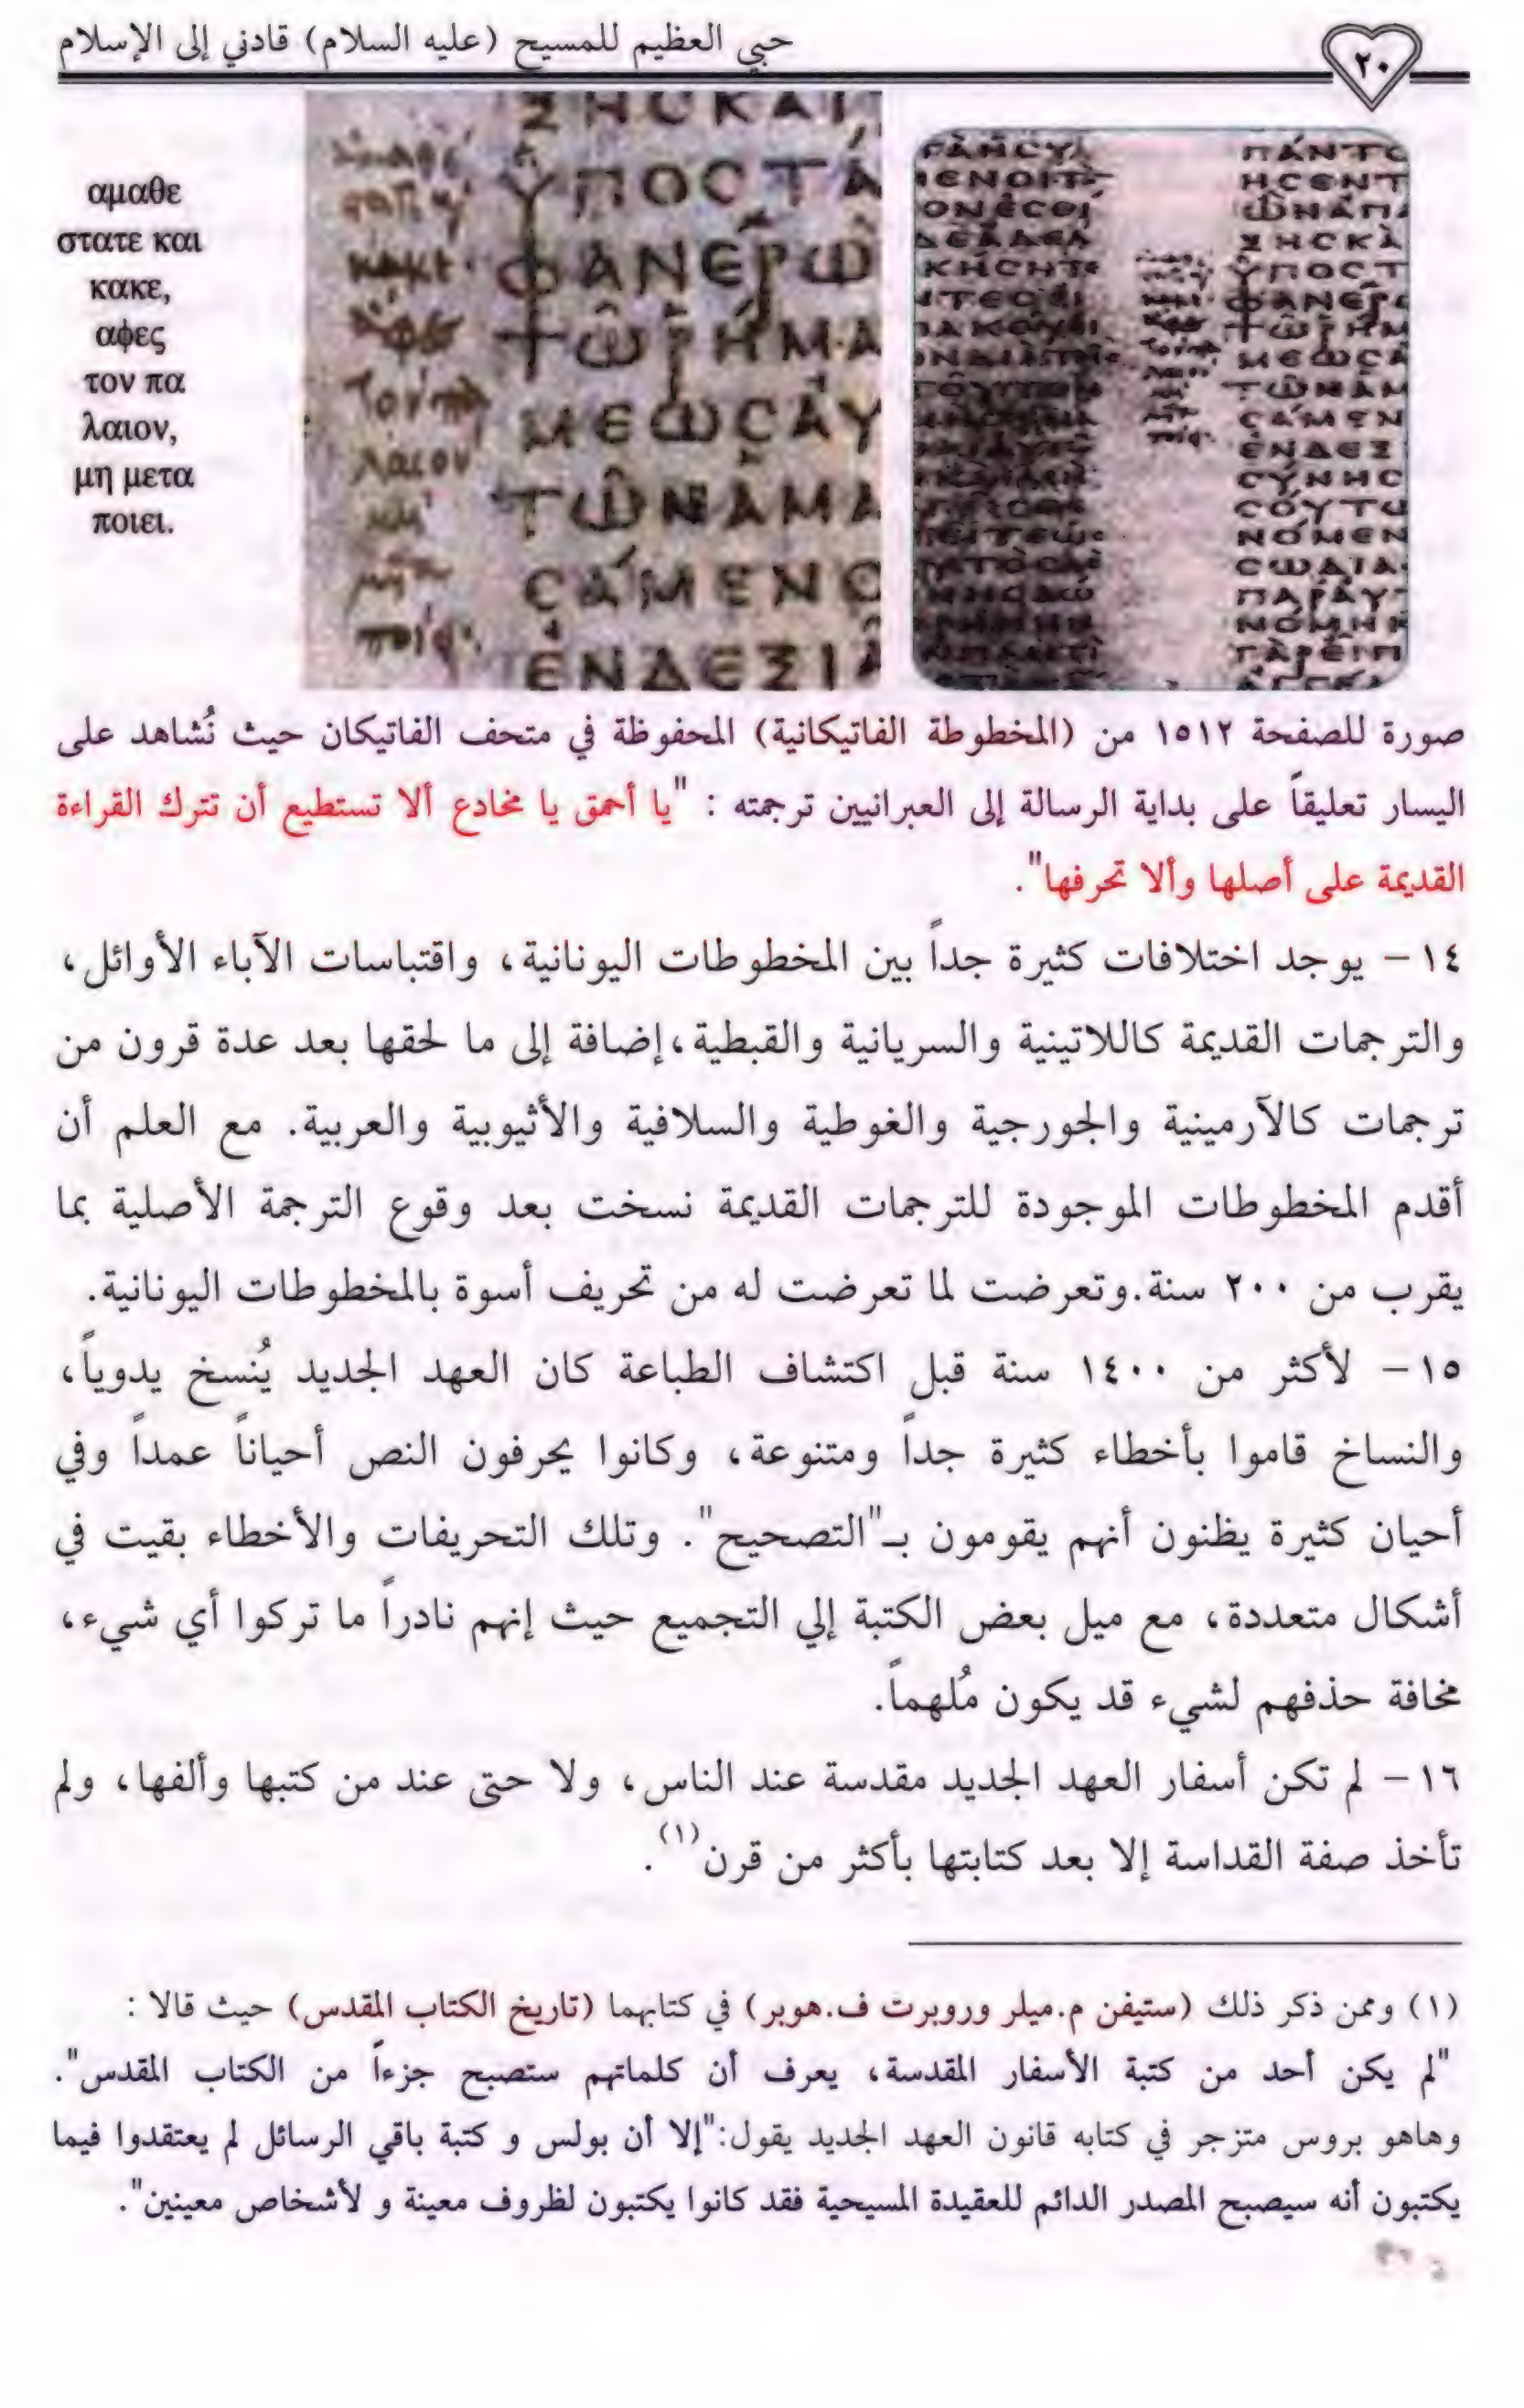 حبي العظيم للمسيح (عليه السلام) قادني إلى الإسلام
٢٠
αμαθε
στατε και
κακε,
αφες
τον πα
λαιον,
μη μετα
ποιει.
ΞΗCΚΑΙ
ΫΠΟCΤΆ
ΦΑΝΕΡΩ
ΤΩΡΗΜΑ
ΜΕΩCΑΥ
ΤΩΝΑΜΑ
CΑΜΕΝΟ
ΕΝΔΕΞΙ
صورة للصفحة ١٥١٢ من (المخطوطة الفاتيكانية) المحفوظة في متحف الفاتيكان حيث نُشاهد على
اليسار تعليقاً على بداية الرسالة إلى العبرانيين ترجمته : "يا أحمق يا مخادع ألا تستطيع أن تترك القراءة
القديمة على أصلها وألا تحرفها".
١٤ – يوجد اختلافات كثيرة جداً بين المخطوطات اليونانية، واقتباسات الآباء الأوائل،
والترجمات القديمة كاللاتينية والسريانية والقبطية،إضافة إلى ما لحقها بعد عدة قرون من
ترجمات كالآرمينية والجورجية والغوطية والسلافية والأثيوبية والعربية. مع العلم أن
أقدم المخطوطات الموجودة للترجمات القديمة نسخت بعد وقوع الترجمة الأصلية بما
يقرب من ٢٠٠ سنة.وتعرضت لما تعرضت له من تحريف أسوة بالمخطوطات اليونانية.
١٥ – لأكثر من ١٤٠٠ سنة قبل اكتشاف الطباعة كان العهد الجديد يُنسخ يدوياً،
والنساخ قاموا بأخطاء كثيرة جداً ومتنوعة، وكانوا يحرفون النص أحياناً عمداً وفي
أحيان كثيرة يظنون أنهم يقومون بـ"التصحيح". وتلك التحريفات والأخطاء بقيت في
أشكال متعددة، مع ميل بعض الكتبة إلي التجميع حيث إنهم نادراً ما تركوا أي شيء،
مخافة حذفهم لشيء قد يكون مُلهماً.
١٦ – لم تكن أسفار العهد الجديد مقدسة عند الناس، ولا حتى عند من كتبها وألفها، ولم
تأخذ صفة القداسة إلا بعد كتابتها بأكثر من قرن(١).
(١) وممن ذكر ذلك (ستيفن م.ميلر وروبرت ف.هوبر) في كتابهما (تاريخ الكتاب المقدس) حيث قالا :
"لم يكن أحد من كتبة الأسفار المقدسة، يعرف أن كلماتهم ستصبح جزءاً من الكتاب المقدس".
وهاهو بروس متزجر في كتابه قانون العهد الجديد يقول:"إلا أن بولس و كتبة باقي الرسائل لم يعتقدوا فيما
يكتبون أنه سيصبح المصدر الدائم للعقيدة المسيحية فقد كانوا يكتبون لظروف معينة و لأشخاص معينين".